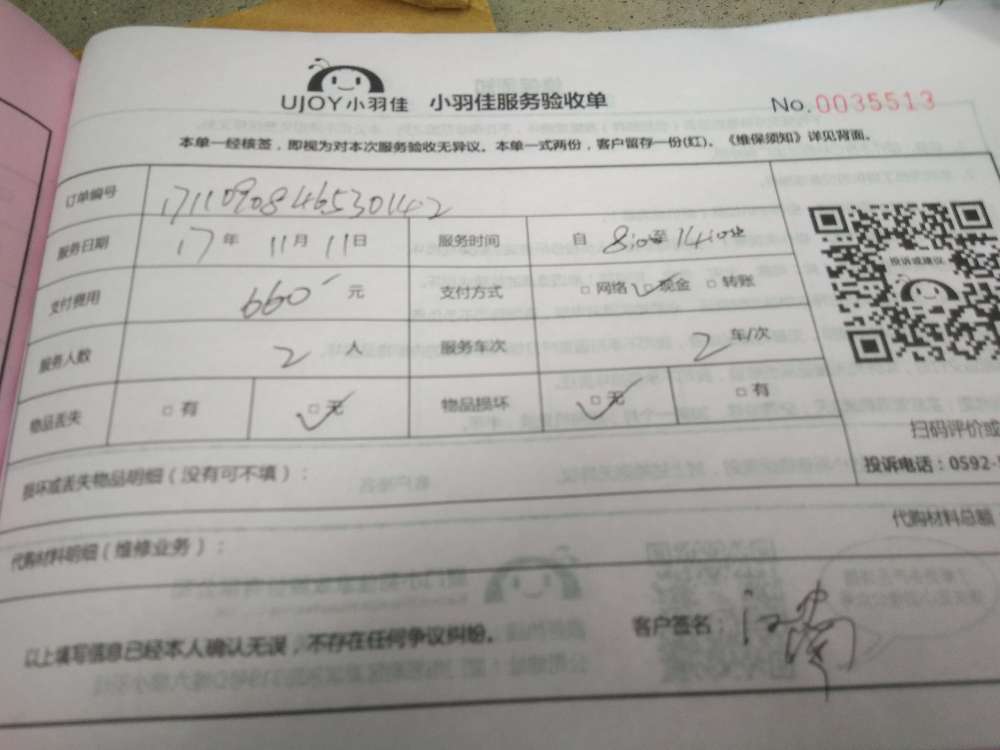 UJOY小羽佳 小羽佳服务验收单 No.0035513
本单一经核签，即视为对本次服务验收无异议。本单一式两份，客户留存一份(红)。《维保须知》详见背面。
订单编号 1711090846530142
服务日期 17年 11月 11日 服务时间 自 8:00至14:00止
支付费用 660 元 支付方式 □网络 □现金 □转账
服务人数 2 人 服务车次 2 车/次
物品丢失 □有 □无 物品损坏 □无 □有
投诉或建议
扫码评价或
投诉电话：0592-
损坏或丢失物品明细（没有可不填）：
代购材料总额
代购材料明细（维修业务）：
以上填写信息已经本人确认无误，不存在任何争议纠纷。 客户签名：